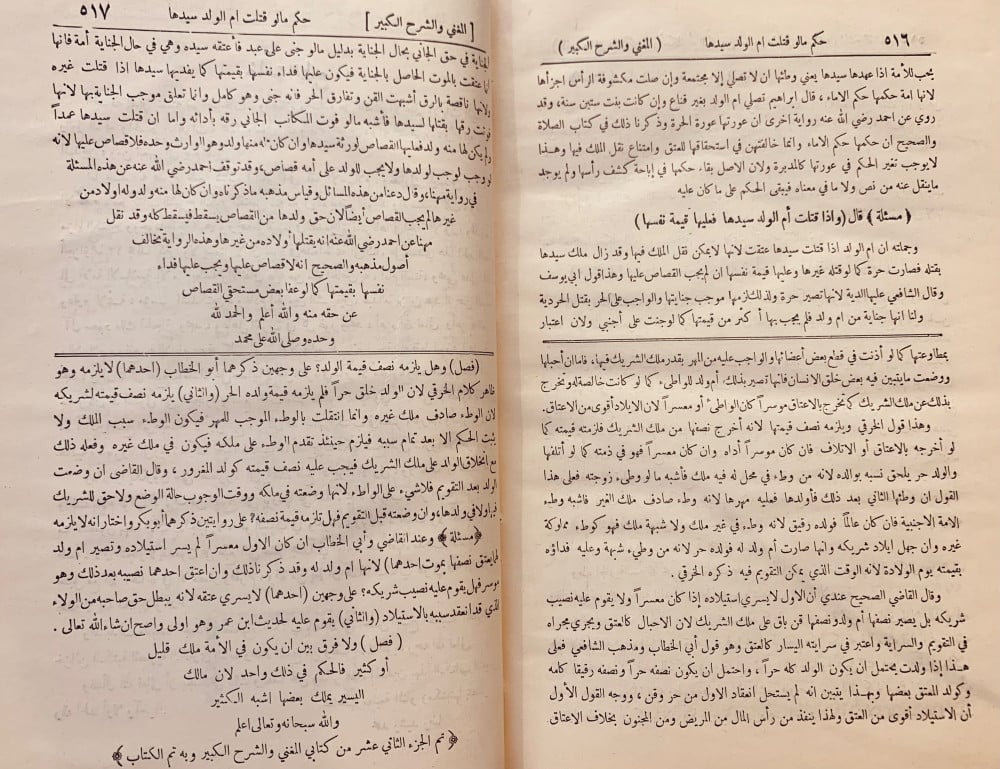 ٥١٦ حكم مالو قتلت ام الولد سيدها ( المغني والشرح الكبير )
يجب للأمة اذا عهدها سيدها يعني وطئها ان لا تصلي إلا مجتمعة وإن صلت مكشوفة الرأس اجزأها
لانها امة حكمها حكم الاماء، قال ابراهيم تصلي ام الولد بغير قناع وإن كانت بنت ستين سنة، وقد
روي عن احمد رضي الله عنه رواية اخرى ان عورتها عورة الحرة وذكرنا ذلك في كتاب الصلاة
والصحيح ان حكمها حكم الاماء، وانما خالفتهن في استحقاقها للعتق وامتناع نقل الملك فيها وهذا
لايوجب تغير الحكم في عورتها كالمدبرة ولان الاصل بقاء حكمها في إباحة كشف رأسها ولم يوجد
ماينقل عنه من نص ولا ما في معناه فيبقى الحكم على ما كان عليه
﴿ مسئلة ﴾ قال (واذا قتلت أم الولد سيدها فعليها قيمة نفسها)
وجملته ان ام الولد اذا قتلت سيدها عتقت لانها لايمكن نقل الملك فيها وقد زال ملك سيدها
بقتله فصارت حرة كما لو قتله غيرها وعليها قيمة نفسها ان لم يجب القصاص عليها وهذا قول ابي يوسف
وقال الشافعي عليها الدية لانها تصير حرة ولذلك لزمها موجب جنايتها والواجب على الحر بقتل الحر دية
ولنا انها جناية من ام ولد فلم يجب بها أكثر من قيمتها كما لو جنت على أجنبي ولان اعتبار
بمطاوعتها كما لو أذنت في قطع بعض أعضائها والواجب عليه من المهر بقدر ملك الشريك فيها، فاما ان أحبلها
ووضعت مايتبين فيه بعض خلق الانسان فانها تصير بذلك أم ولد للواطىء كما لو كانت خالصة له وتخرج
بذلك عن ملك الشريك كما تخرج بالاعتاق موسراً كان الواطئ أو معسراً لان الايلاد أقوى من الاعتاق.
وهذا قول الخرقي ويلزمه نصف قيمتها لانه أخرج نصفها من ملك الشريك فلزمته قيمته كما
لو أخرجه بالاعتاق أو الاتلاف فان كان موسراً أداه وان كان معسراً فهو في ذمته كما لو أتلفها
والولد حر يلحق نسبه بوالده لانه من وطء في محل له فيه ملك فأشبه ما لو وطىء زوجته فعلى هذا
القول ان وطئها الثاني بعد ذلك فأولدها فعليه مهرها لانه وطء صادف ملك الغير فاشبه وطء
الامة الاجنبية فان كان عالماً فولده رقيق لانه وطء في غير ملك ولا شبهة ملك فهو كوطء مملوكة
غيره وان جهل ايلاد شريكه وانها صارت أم ولد له فولده حر لانه من وطيء شبهة وعليه فداؤه
بقيمته يوم الولادة لانه الوقت الذي يمكن التقويم فيه ذكره الخرقي.
وقال القاضي الصحيح عندي أن الاول لا يسري استيلاده إذا كان معسراً ولا يقوم عليه نصيب
شريكه بل يصير نصفها أم ولد ونصفها قن باق على ملك الشريك لان الاحبال كالعتق ويجري مجراه
في التقويم والسراية واعتبر في سرايته اليسار كالعتق وهو قول أبي الخطاب ومذهب الشافعي فعلى
هذا إذا ولدت يحتمل ان يكون الولد كله حراً، واحتمل ان يكون نصفه حراً ونصفه رقيقا كامه
وكولد المعتق بعضها وبهذا يتبين انه لم يستحل انعقاد الاول من حر وقن، ووجه القول الأول
أن الاستيلاد أقوى من العتق ولهذا ينفذ من رأس المال من المريض ومن المجنون بخلاف الاعتاق
[ المغني والشرح الكبير ] حكم مالو قتلت ام الولد سيدها ٥١٧
الجناية في حق الجاني بحال الجناية بدليل مالو جنى على عبد فأعتقه سيده وهي في حال الجناية أمة فانها
انما عتقت بالموت الحاصل بالجناية فيكون عليها فداء نفسها بقيمتها كما يفديها سيدها اذا قتلت غيره
ولانها ناقصة بالرق أشبهت القن وتفارق الحر فانه جنى وهو كامل وانما تعلق موجب الجناية بها لانها
فوتت رقها بقتلها لسيدها فأشبه مالو فوت المكاتب الجاني رقه بأدائه واما ان قتلت سيدها عمداً
ولم يكن لها منه ولد فعليها القصاص لورثة سيدها وان كان له منها ولد وهو الوارث وحده فلا قصاص عليها لانه
لو وجب لوجب لولدها ولا يجب للولد على أمه قصاص، وقد توقف احمد رضي الله عنه عن هذه المسئلة
في رواية مهنا، وقال دعنا من هذه المسائل وقياس مذهبه ماذكرناه وان كان لها منه ولد وله أولاد من
غيرها لم يجب القصاص أيضا لان حق ولدها من القصاص يسقط فيسقط كله وقد نقل
مهنا عن احمد رضي الله عنه انه يقتلها أولاده من غيرها وهذه الرواية تخالف
أصول مذهبه والصحيح انه لا قصاص عليها ويجب عليها فداء
نفسها بقيمتها كما لو عفا بعض مستحقي القصاص
عن حقه منه والله أعلم والحمد لله
وحده وصلى الله على محمد
(فصل) وهل يلزمه نصف قيمة الولد؟ على وجهين ذكرهما أبو الخطاب (احدهما) لا يلزمه وهو
ظاهر كلام الخرقي لان الولد خلق حراً فلم يلزمه قيمة ولده الحر (والثاني) يلزمه نصف قيمته لشريكه
لان الوطء صادف ملك غيره وانما انتقلت بالوطء الموجب للمهر فيكون الوطء سبب الملك ولا
يثبت الحكم الا بعد تمام سببه فيلزم حينئذ تقدم الوطء على ملكه فيكون في ملك غيره وفعله ذلك
مع انخلاق الولد على ملك الشريك فيجب عليه نصف قيمته كولد المغرور، وقال القاضي ان وضعت
الولد بعد التقويم فلا شيء على الواطء لانها وضعته في ملكه ووقت الوجوب حالة الوضع ولا حق للشريك
فيها ولا في ولدها، وان وضعته قبل التقويم فهل تلزمه قيمة نصفه؟ على روايتين ذكرهما أبو بكر واختار انه لا يلزمه
﴿مسئلة﴾ وعند القاضي وأبي الخطاب ان كان الاول معسراً لم يسر استيلاده وتصير ام ولد
لهما يعتق نصفها بموت احدهما) لانها ام ولد له وقد ذكرنا ذلك وان اعتق احدهما نصيبه بعد ذلك وهو
موسر فهل يقوم عليه نصيب شريكه؟ على وجهين (احدهما) لا يسري عتقه لانه يبطل حق صاحبه من الولاء
الذي قد انعقد سببه بالاستيلاد (والثاني) يقوم عليه لحديث ابن عمر وهو اولى واصح ان شاء الله تعالى.
( فصل ) ولا فرق بين ان يكون في الأمة ملك قليل
أو كثير فالحكم في ذلك واحد لان مالك
اليسير يملك بعضها اشبه الكثير
والله سبحانه وتعالى اعلم
﴿ تم الجزء الثاني عشر من كتابي المغني والشرح الكبير وبه تم الكتاب ﴾